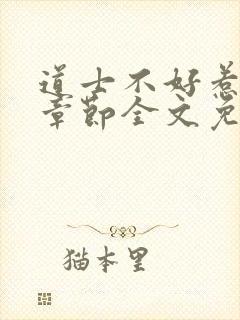 道士不好惹
章節全文免
猫本里